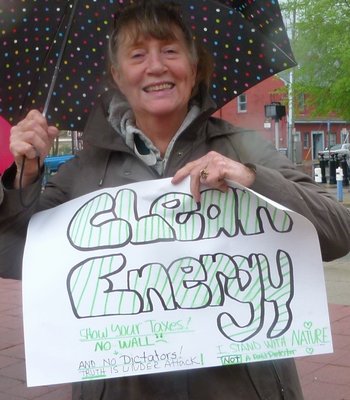 Clean
Energy
SHOW YOUR TAXES!
NO WALL
AND NO DICTATORS!
TRUTH IS UNDER ATTACK!
I STAND WITH NATURE
NOT A Paid Protester